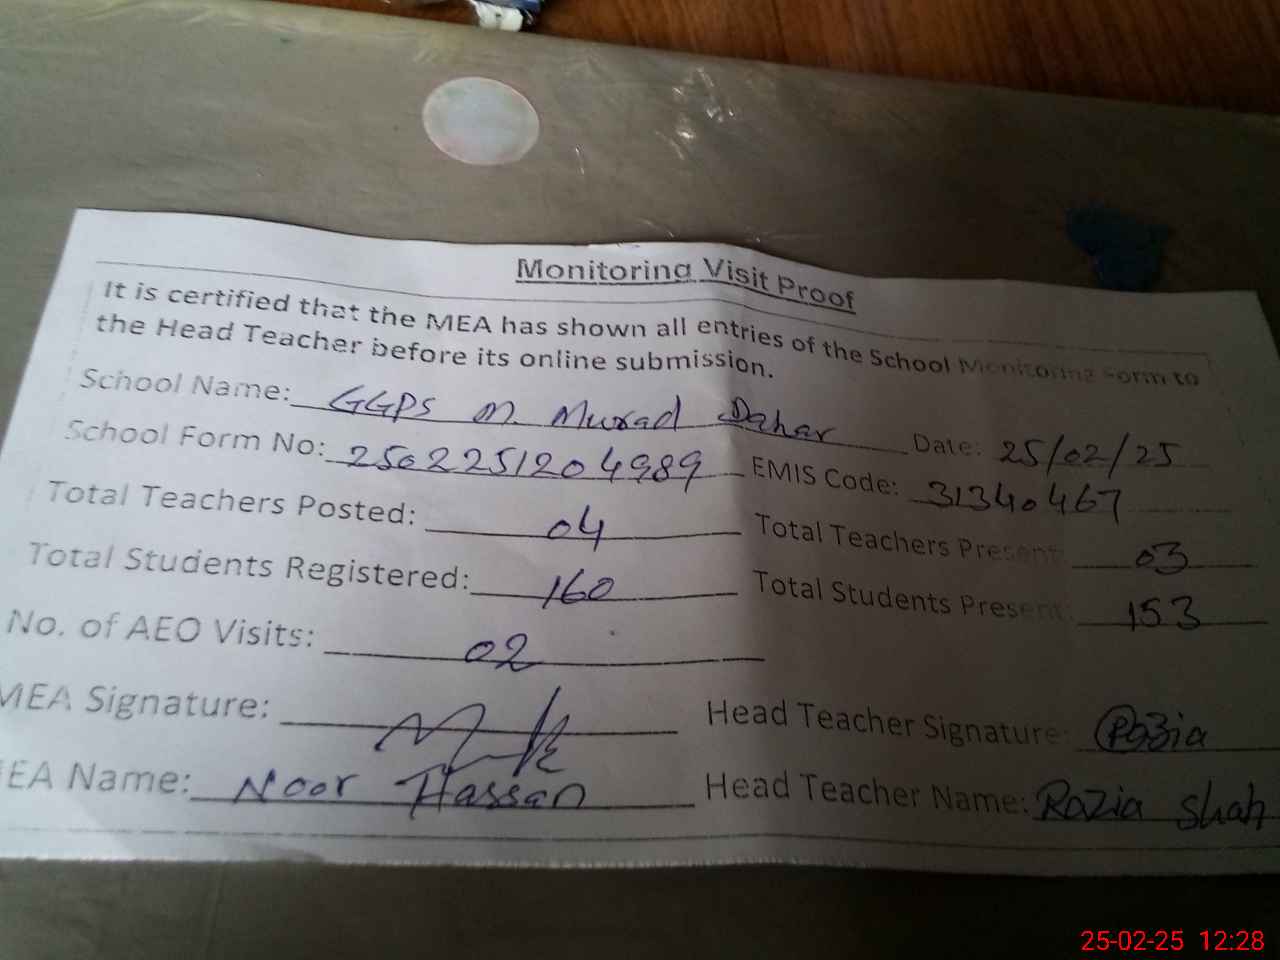 Monitoring Visit Proof
It is certified that the MEA has shown all entries of the School Monitoring Form to
the Head Teacher before its online submission.
School Name: GGPS M. Murad Dahar Date: 25/02/25
School Form No: 25022251204989 EMIS Code: 31340467
Total Teachers Posted: 04 Total Teachers Present: 03
Total Students Registered: 160 Total Students Present: 153
No. of AEO Visits: 02
MEA Signature: Head Teacher Signature: Razia
EA Name: Noor Hassan Head Teacher Name: Razia Shah
25-02-25 12:28